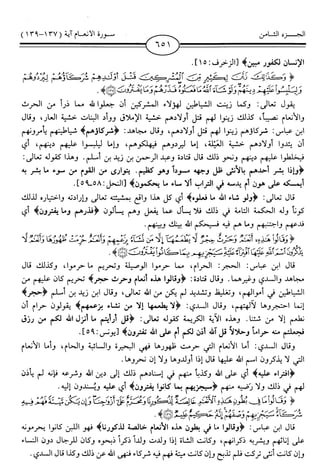 الجـزء الثامـن
٦٥١
سـورة الانعـام آية (١٣٧-١٣٩)
الإنسان لكفور مبين﴾ [الزخرف: ١٥].
﴿ وَكَذَٰلِكَ زَيَّنَ لِكَثِيرٍ مِّنَ ٱلْمُشْرِكِينَ قَتْلَ أَوْلَٰدِهِمْ شُرَكَآؤُهُمْ لِيُرْدُوهُمْ
وَلِيَلْبِسُوا۟ عَلَيْهِمْ دِينَهُمْ وَلَوْ شَآءَ ٱللَّهُ مَا فَعَلُوهُ فَذَرْهُمْ وَمَا يَفْتَرُونَ
يقول تعالى: وكما زينت الشياطين لهؤلاء المشركين أن جعلوا لله مما ذرأ من الحرث
والأنعام نصيباً، كذلك زينوا لهم قتل أولادهم خشية الإملاق ووأد البنات خشية العار، وقال
ابن عباس: شركاؤهم زينوا لهم قتل أولادهم، وقال مجاهد: ﴿شركاؤهم﴾ شياطينهم يأمرونهم
أن يئدوا أولادهم خشية العيْلة، إما ليردوهم فيهلكوهم، وإما ليلبسوا عليهم دينهم، أي
فيخلطوا عليهم دينهم ونحو ذلك قال قتادة وعبد الرحمن بن زيد بن أسلم. وهذا كقوله تعالى:
﴿وإذا بشر أحدهم بالأنثى ظل وجهه مسوداً وهو كظيم. يتوارى من القوم من سوء ما بشر به
أيمسكه على هون أم يدسه في التراب ألا ساء ما يحكمون﴾ [النحل: ٥٨-٥٩].
قال تعالى: ﴿ولو شاء الله ما فعلوه﴾ أي كل هذا واقع بمشيئته تعالى وإرادته واختياره لذلك
كوناً وله الحكمة التامة في ذلك فلا يسأل عما يفعل وهم يسألون ﴿فذرهم وما يفترون﴾ أي
فدعهم واجتنبهم وما هم فيه فسيحكم الله بينك وبينهم.
﴿ وَقَالُوا۟ هَٰذِهِۦٓ أَنْعَٰمٌ وَحَرْثٌ حِجْرٌ لَّا يَطْعَمُهَآ إِلَّا مَن نَّشَآءُ بِزَعْمِهِمْ وَأَنْعَٰمٌ حُرِّمَتْ ظُهُورُهَا وَأَنْعَٰمٌ لَّا
يَذْكُرُونَ ٱسْمَ ٱللَّهِ عَلَيْهَا ٱفْتِرَآءً عَلَيْهِ سَيَجْزِيهِم بِمَا كَانُوا۟ يَفْتَرُونَ
قال ابن عباس: الحجر: الحرام، مما حرموا الوصيلة وتحريم ما حرموا، وكذلك قال
مجاهد والسدي وغيرهما. وقال قتادة: ﴿وقالوا هذه أنعام وحرث حجر﴾ تحريم كان عليهم من
الشياطين في أموالهم، وتغليظ وتشديد لم يكن من الله تعالى. وقال ابن زيد بن أسلم ﴿حجر﴾
إنما احتجروها لآلهتهم، وقال السدي: ﴿لا يطعمها إلا من نشاء بزعمهم﴾ يقولون حرام أن
نطعم إلا من شئنا. وهذه الآية الكريمة كقوله تعالى: ﴿قل أرأيتم ما أنزل الله لكم من رزق
فجعلتم منه حراماً وحلالاً قل آلله أذن لكم أم على الله تفترون﴾ [يونس: ٥٩].
وقال السدي: أما الأنعام التي حرمت ظهورها فهي البحيرة والسائبة والحام، وأما الأنعام
التي لا يذكرون اسم الله عليها قال إذا أولدوها ولا إن نحروها.
﴿افتراء عليه﴾ أي على الله وكذباً منهم في إسنادهم ذلك إلى دين الله وشرعه فإنه لم يأذن
لهم في ذلك ولا رضيه منهم ﴿سيجزيهم بما كانوا يفترون﴾ أي عليه ويُسندون إليه.
﴿ وَقَالُوا۟ مَا فِى بُطُونِ هَٰذِهِ ٱلْأَنْعَٰمِ خَالِصَةٌ لِّذُكُورِنَا وَمُحَرَّمٌ عَلَىٰٓ أَزْوَٰجِنَا وَإِن يَكُن مَّيْتَةً فَهُمْ فِيهِ
شُرَكَآءُ سَيَجْزِيهِمْ وَصْفَهُمْ إِنَّهُۥ حَكِيمٌ عَلِيمٌ
قال ابن عباس: ﴿وقالوا ما في بطون هذه الأنعام خالصة لذكورنا﴾ فهو اللبن كانوا يحرمونه
على إناثهم ويشربه ذكرانهم، وكانت الشاة إذا ولدت ولداً ذكراً ذبحوه وكان للرجال دون النساء
وإن كانت أنثى تركت فلم تذبح وإن كانت ميتة فهم فيه شركاء فنهى الله عن ذلك وكذا قال السدي.